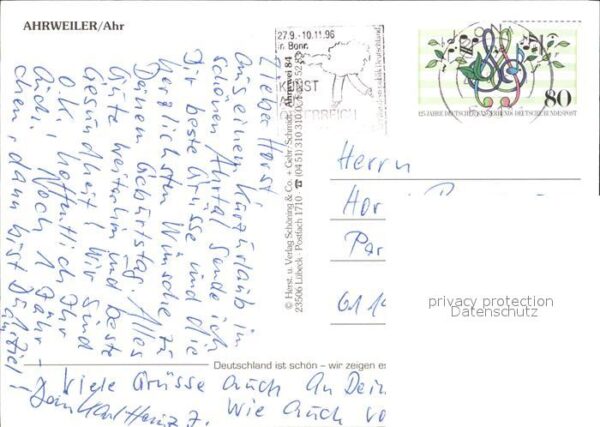 AHRWEILER/Ahr
27.9. - 10.11.96
in Bonn
KUNST
ÖSTERREICH
80
125 JAHRE DEUTSCHER SÄNGERBUND DEUTSCHE BUNDESPOST
Lieber Horst!
Aus einem Kurzurlaub im
schönen Ahrtal sende ich
Dir beste Grüsse und die
herzlichsten Wünsche zu
Deinem Geburtstag. Alles
Gute weiterhin und beste
Gesundheit! Wir sind
o.k. hoffentlich Ihr
auch! Noch 1 Jähr-
chen, dann bist Du
am Ziel!
Viele Grüsse auch an Dein
Dein Karl Heinz J. wie auch vo
© Herst. u. Verlag Schöning & Co. + Gebr. Schmidt, Ahrwei 84
23506 Lübeck - Postfach 1710 - ☎ (04 51) 310 310
Herrn
Hor
Par
61 1
privacy protection
Datenschutz
Deutschland ist schön – wir zeigen es